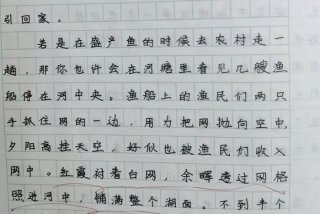 引回家。
若是在盛产鱼的时候去农村走一
趟，那你也许会在河塘里看见几艘鱼
船停在河中央。渔船上的渔民们两只
手抓住网的一边，用力把网抛向空中，
夕阳高挂天空，好似也被渔民们收入
网中。红霞衬着白网，余晖透过网格
照进河中，铺满整个湖面。不到半个